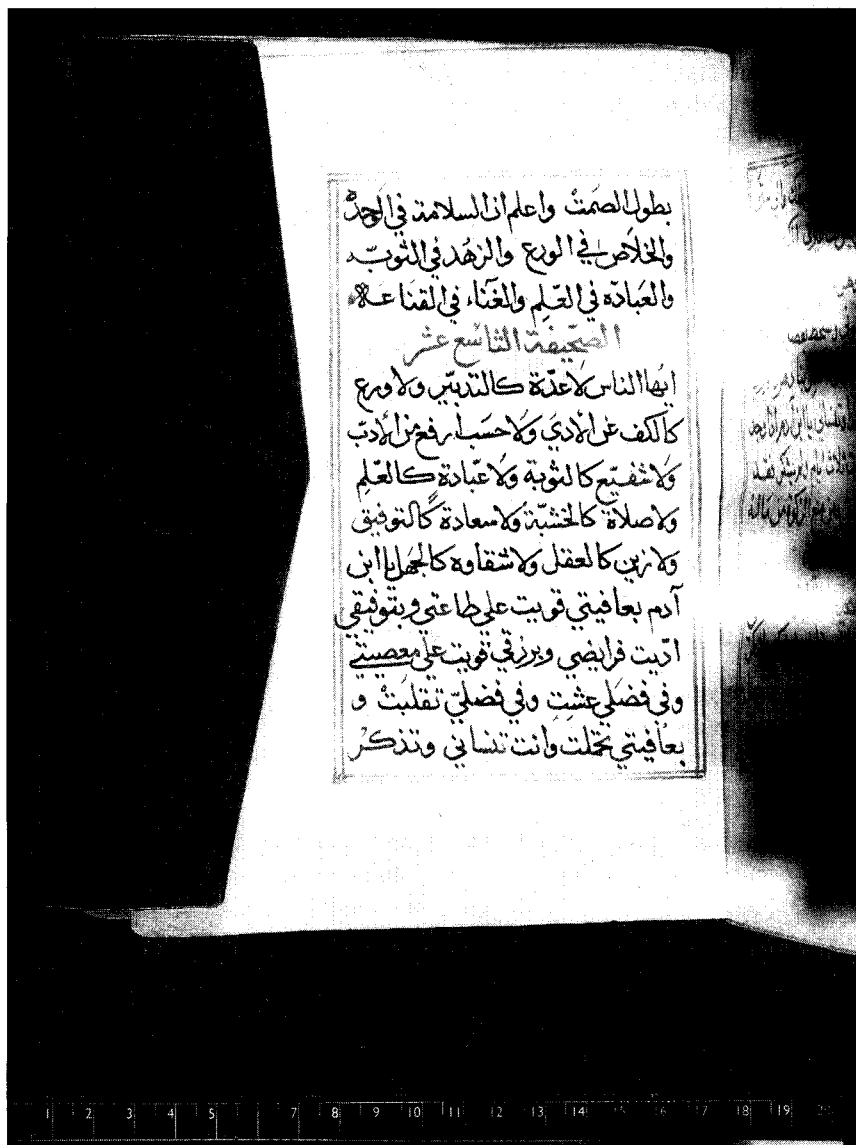 بطول الصمت واعلم ان السلامة في الوحدة
والخلاص في الورع والزهد في التوبة
والعبادة في العلم والغناء في القناعة
الصحيفة التاسع عشر
ايها الناس لا عدة كالتدبير ولا ورع
كالكف عن الادي ولا حسب ارفع من الادب
ولا شفيع كالتوبة ولا عبادة كالعلم
ولا صلاة كالخشية ولا سعادة كالتوفيق
ولا زين كالعقل ولا شقاوة كالجهل يا ابن
آدم بعافيتي قويت علي طاعتي وبتوفيقي
اديت فرايضي وبرزقي قويت علي معصيتي
وفي فضلي عشت وفي فضلي تقلبت و
بعافيتي تجملت وانت تنساني وتذكر
1 2 3 4 5 7 8 9 10 11 12 13 14 15 16 17 18 19